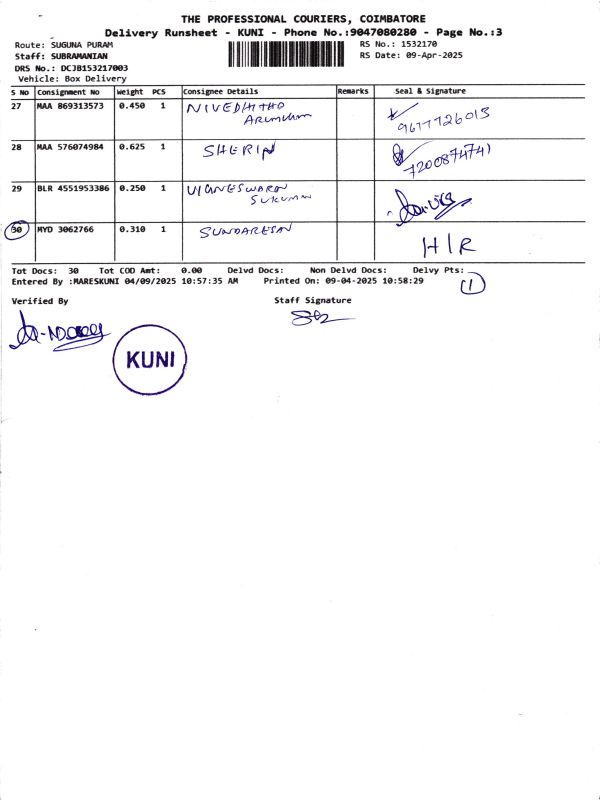 THE PROFESSIONAL COURIERS, COIMBATORE
Delivery Runsheet - KUNI - Phone No.:9047080280 - Page No.:3
Route: SUGUNA PURAM
RS No.: 1532170
Staff: SUBRAMANIAN
RS Date: 09-Apr-2025
DRS No.: DCJB153217003
Vehicle: Box Delivery
S No Consignment No Weight PCS Consignee Details Remarks Seal & Signature
27 MAA 869313573 0.450 1 NIVEDHITHA
9677726013
28 MAA 576074984 0.625 1 SHERIN 7200874741
29 BLR 4551953386 0.250 1 VIGNESWARAN
SUKUMAR
30 MYD 3062766 0.310 1 SUNDARESAN
H/R
Tot Docs: 30 Tot COD Amt: 0.00 Delvd Docs: Non Delvd Docs: Delvy Pts:
1
Entered By :MARESKUNI 04/09/2025 10:57:35 AM Printed On: 09-04-2025 10:58:29
Verified By Staff Signature
KUNI